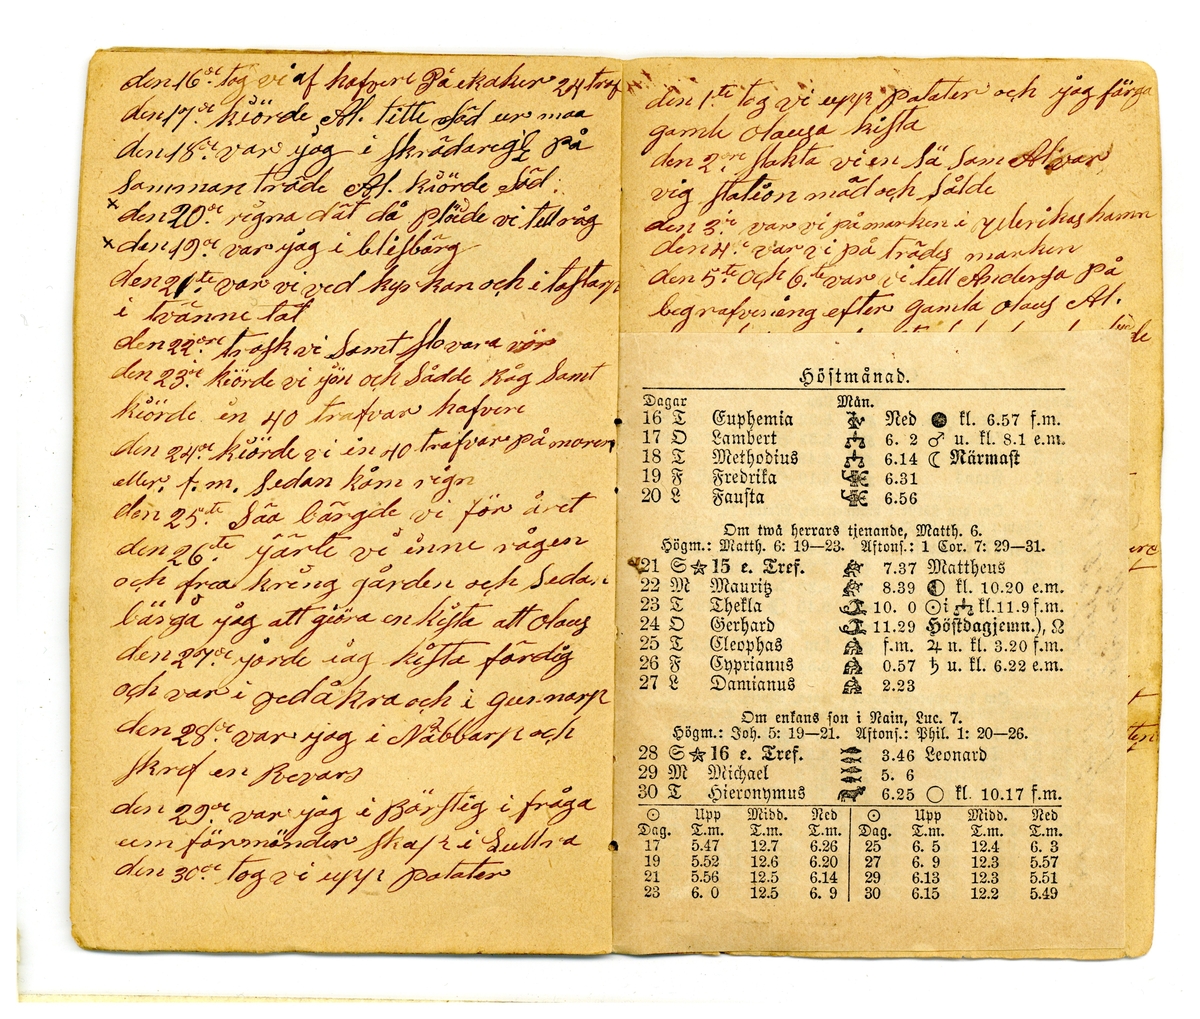 den 16de tog vi af hafvere På ekaker 24 traf
den 17de kiörde Al. litte Säd ur maa
den 18de var jag i skrädareg på
Samman träde Al. kiörde Säd.
× den 20de rigna dät då plöide vi tell råg
× den 19de var jag i blisbärg
den 21te var vi ved kyrkan och i tostarp
i tvänne tat
den 22dre trask vi Samt slovara vör
den 23de kiörde vi jön och Sådde Råg Samt
kiörde en 40 trafvar hafvere
den 24de kiörde vi en 40 trafvar på moren
eller f.m. Sedan kom rign
den 25te Säa bärgde vi för året
den 26te järte vi inne rågen
och fraa kring gården och Sedan
bärga jag att giöra en kista att Olaus
den 27de jorde iag kista färdig
och var i gedåkra och i gusnarp
den 28de var jag i Nabbarp och
skref en Revars
den 29de var jag i Börstig i fråga
um förmönder skap i Lultra
den 30de tog vi upp patater
den 1te tog vi upp Patater och jag färga
gamle Olausa kista
den 2dre slakta vi en Sä Som Al var
vig station mäd och Sålde
den 3de var vi på marken i
den 4de var vi på trädes marken
den 5te och 6te var vi tell Anderga på
begrafvening efter gamla Olaus Al.
Höstmånad.
Dagar Mån.
16 T Euphemia Ned kl. 6.57 f.m.
17 O Lambert 6. 2 ♂ u. kl. 8.1 e.m.
18 T Methodius 6.14 ☾ Närmast
19 F Fredrika 6.31
20 L Fausta 6.56
Om twå herrars tjenande, Matth. 6.
Högm.: Matth. 6: 19—23. Aftons.: 1 Cor. 7: 29—31.
21 S ☆ 15 e. Tref. 7.37 Mattheus
22 M Mauritz 8.39 ◐ kl. 10.20 e.m.
23 T Thekla 10. 0 ☉ i ♎ kl. 11.9 f.m.
24 O Gerhard 11.29 Höstdagjemn.), ☊
25 T Cleophas f.m. ♃ u. kl. 3.20 f.m.
26 F Cyprianus 0.57 ♄ u. kl. 6.22 e.m.
27 L Damianus 2.23
Om enkans son i Nain, Luc. 7.
Högm.: Joh. 5: 19—21. Aftons.: Phil. 1: 20—26.
28 S ☆ 16 e. Tref. 3.46 Leonard
29 M Michael 5. 6
30 T Hieronymus 6.25 ○ kl. 10.17 f.m.
☉ Upp Midd. Ned ☉ Upp Midd. Ned
Dag. T.m. T.m. T.m. Dag. T.m. T.m. T.m.
17 5.47 12.7 6.26 25 6. 5 12.4 6. 3
19 5.52 12.6 6.20 27 6. 9 12.3 5.57
21 5.56 12.5 6.14 29 6.13 12.3 5.51
23 6. 0 12.5 6. 9 30 6.15 12.2 5.49